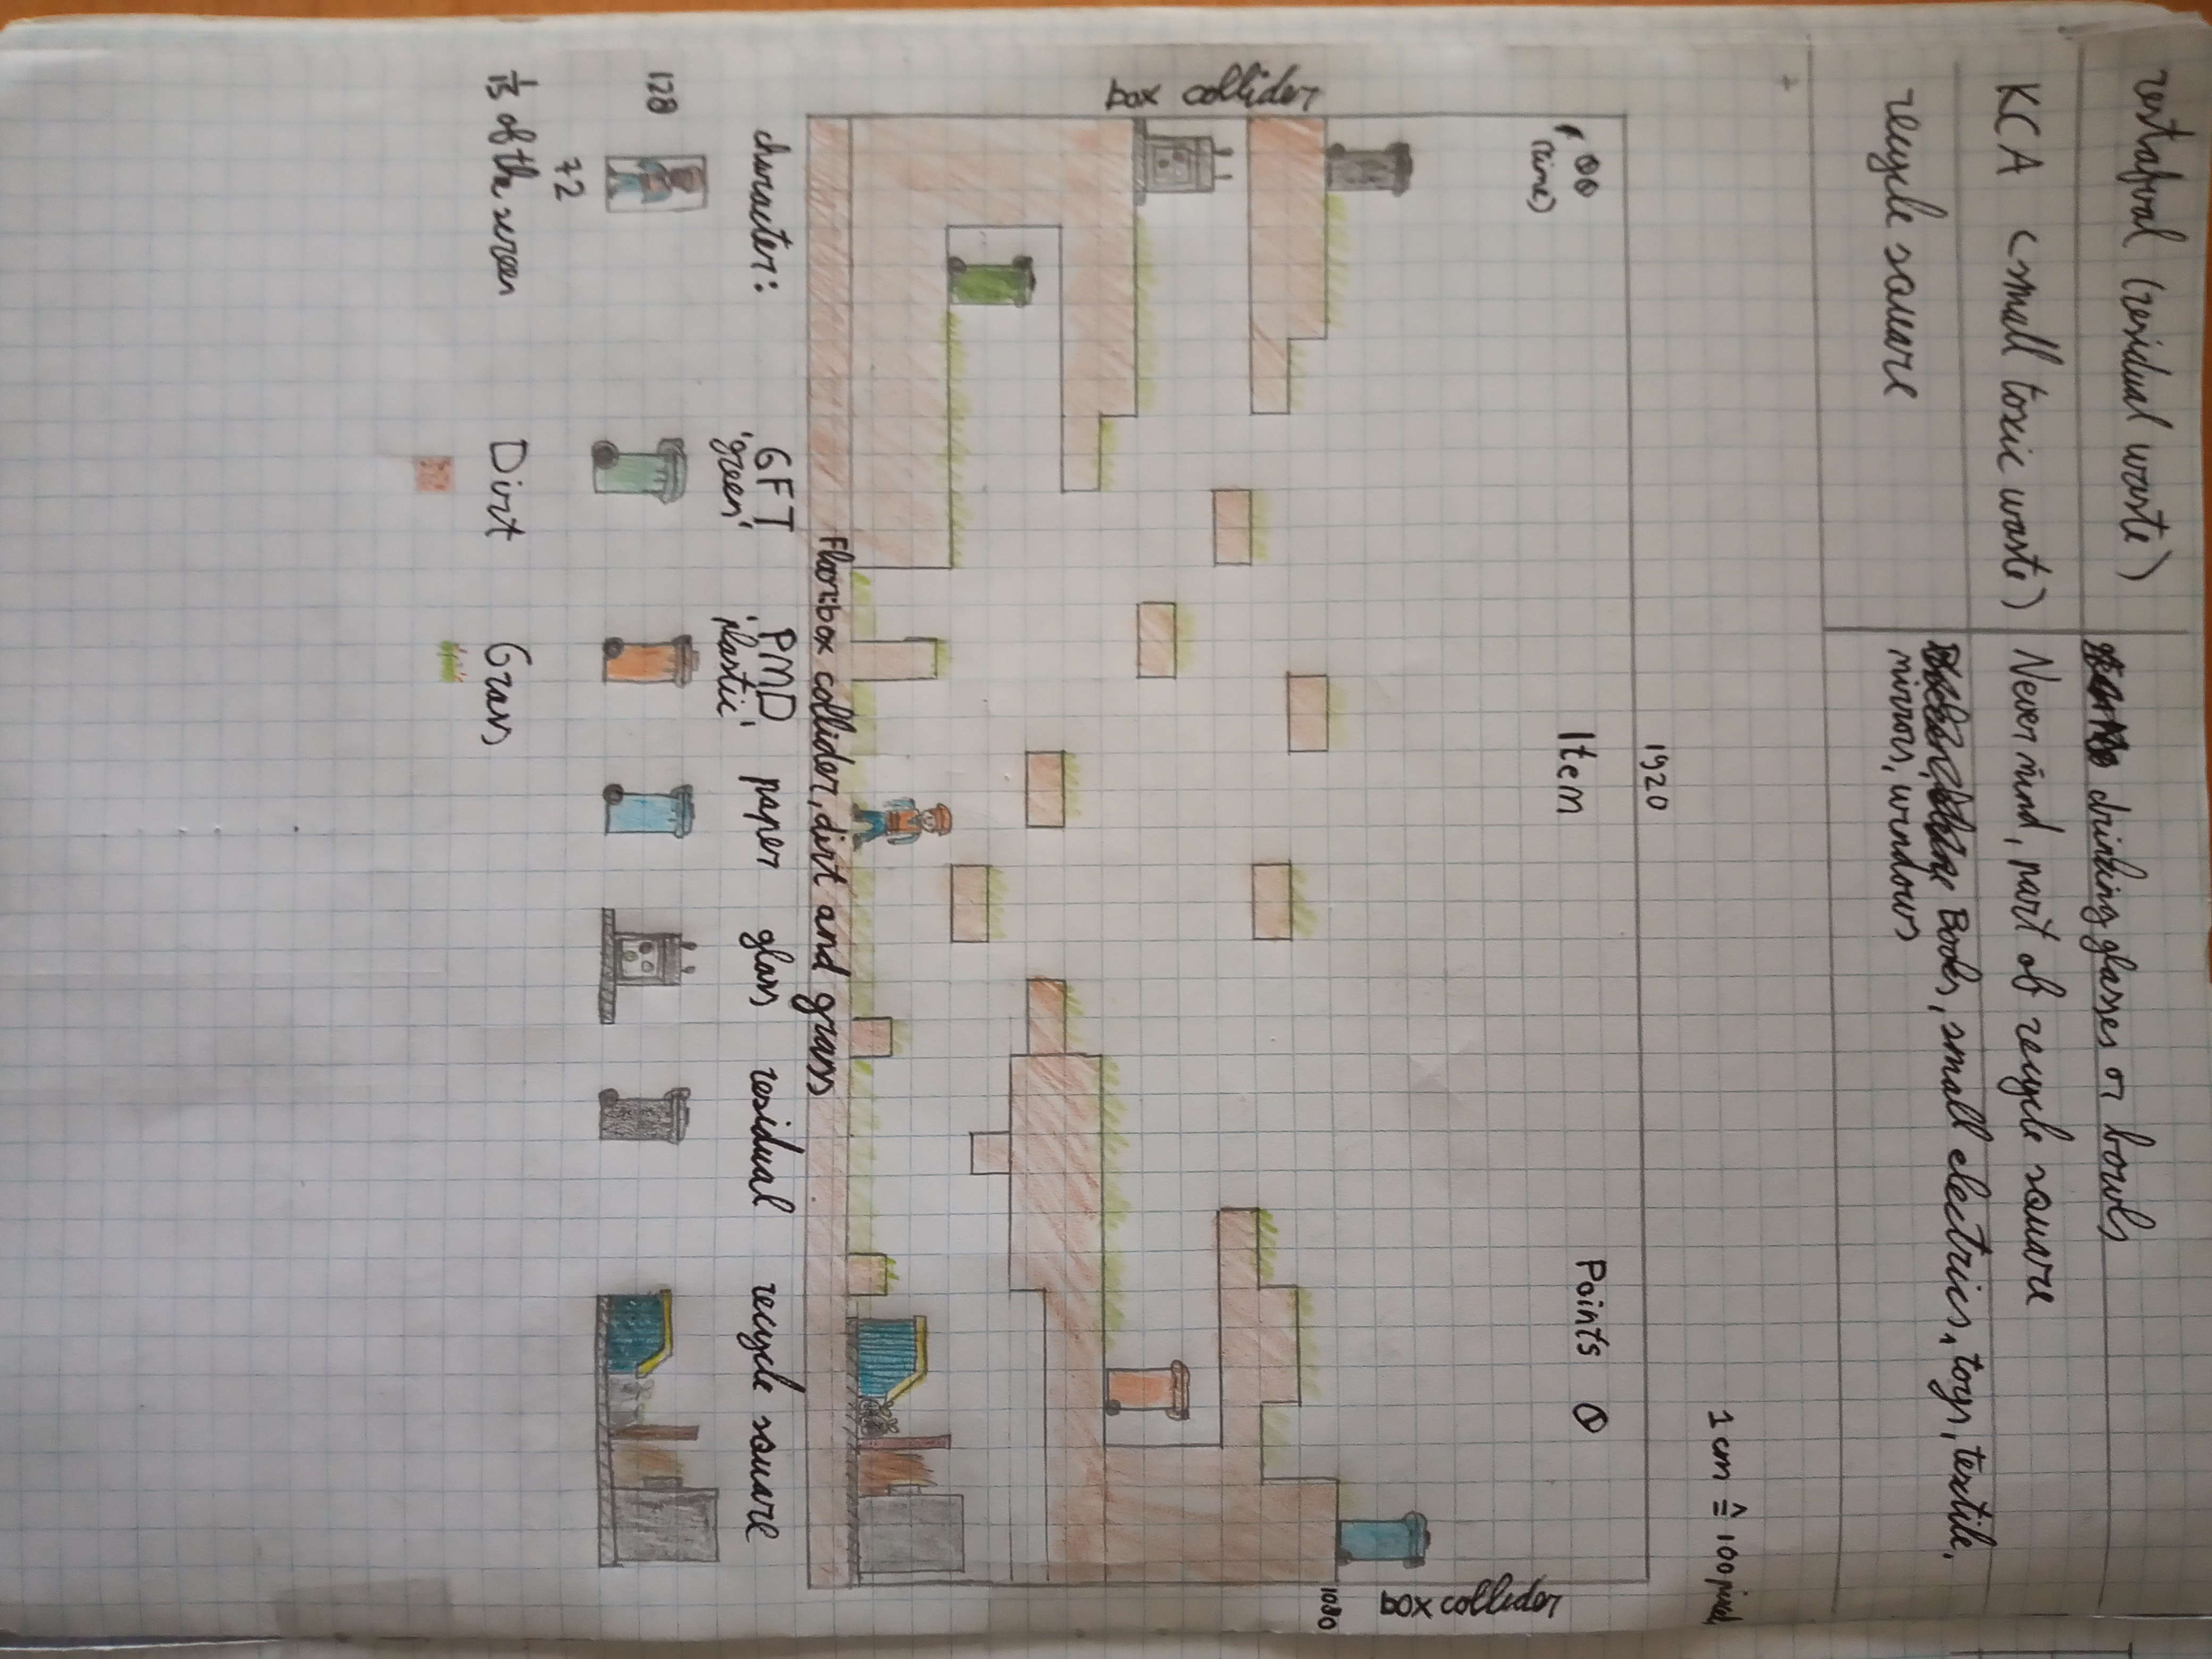 restafval (residual waste)
drinking glasses or bowls
KCA (small toxic waste)
Never mind, part of recycle square
recycle square
Books, small electrics, toys, textile,
mirrors, windows
1 cm ≙ 100 pixel
1920
00
(time)
Item
Points 0
box collider
box collider
1080
Floor: box collider, dirt and grass
character:
GFT
'green'
PMD
'plastic'
paper
glass
residual
recycle square
128
72
1/15 of the screen
Dirt
Grass